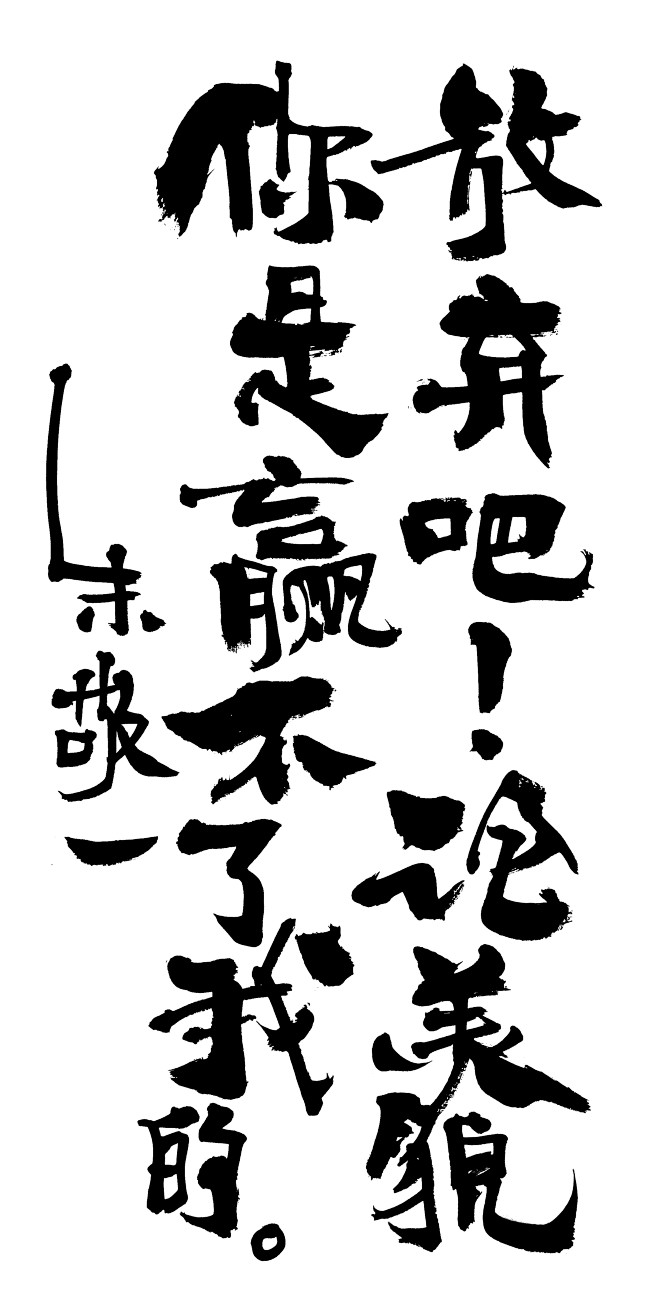 放弃吧！论美貌
你是赢不了我的。
朱敬一